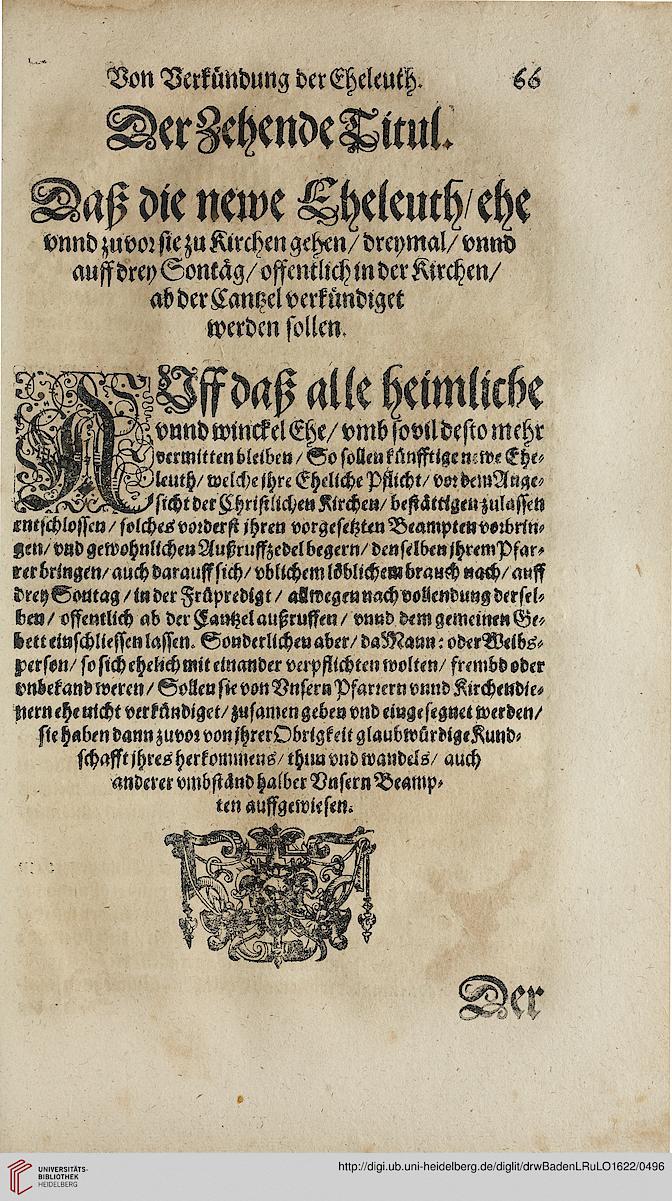 Von Verkündung der Eheleuth. 66
Der Zehende Titul.
Daß die newe Eheleuth/ ehe
vnnd zuvor sie zu Kirchen gehen/ dreymal/ vnnd
auff drey Sontäg/ offentlich in der Kirchen/
ab der Cantzel verkündiget
werden sollen.
AUff daß alle heimliche
vnnd winckel Ehe/ vmb so vil desto mehr
vermitten bleiben/ So sollen künfftige newe Ehe-
leuth/ welche ihre Eheliche Pflicht/ vor dem Ange-
sicht der Christlichen Kirchen/ bestättigen zulassen
entschlossen/ solches vorderst ihren vorgesetzten Beampten vorbrin-
gen/ vnd gewohnlichen Außruffzedel begern/ denselben jhrem Pfar-
rer bringen/ auch darauff sich/ vblichem löblichem brauch nach/ auff
drey Sontag/ in der Früpredigt/ allwegen nach vollendung dersel-
ben/ offentlich ab der Cantzel außruffen/ vnnd dem gemeinen Ge-
bett einschliessen lassen. Sonderlichen aber/ da Mann: oder Weibs-
person/ so sich ehelich mit einander verpflichten wolten/ frembd oder
vnbekand weren/ Sollen sie von Vnsern Pfarrern vnnd Kirchendie-
nern ehe nicht verkündiget/ zusamen geben vnd eingesegnet werden/
sie haben dann zuvor von jhrer Obrigkeit glaubwürdige Kund-
schafft jhres herkommens/ thun vnd wandels/ auch
anderer vmbständ halber Vnsern Beamp-
ten auffgewiesen.
Der
UNIVERSITÄTS-
BIBLIOTHEK
HEIDELBERG
http://digi.ub.uni-heidelberg.de/diglit/drwBadenLRuLO1622/0496